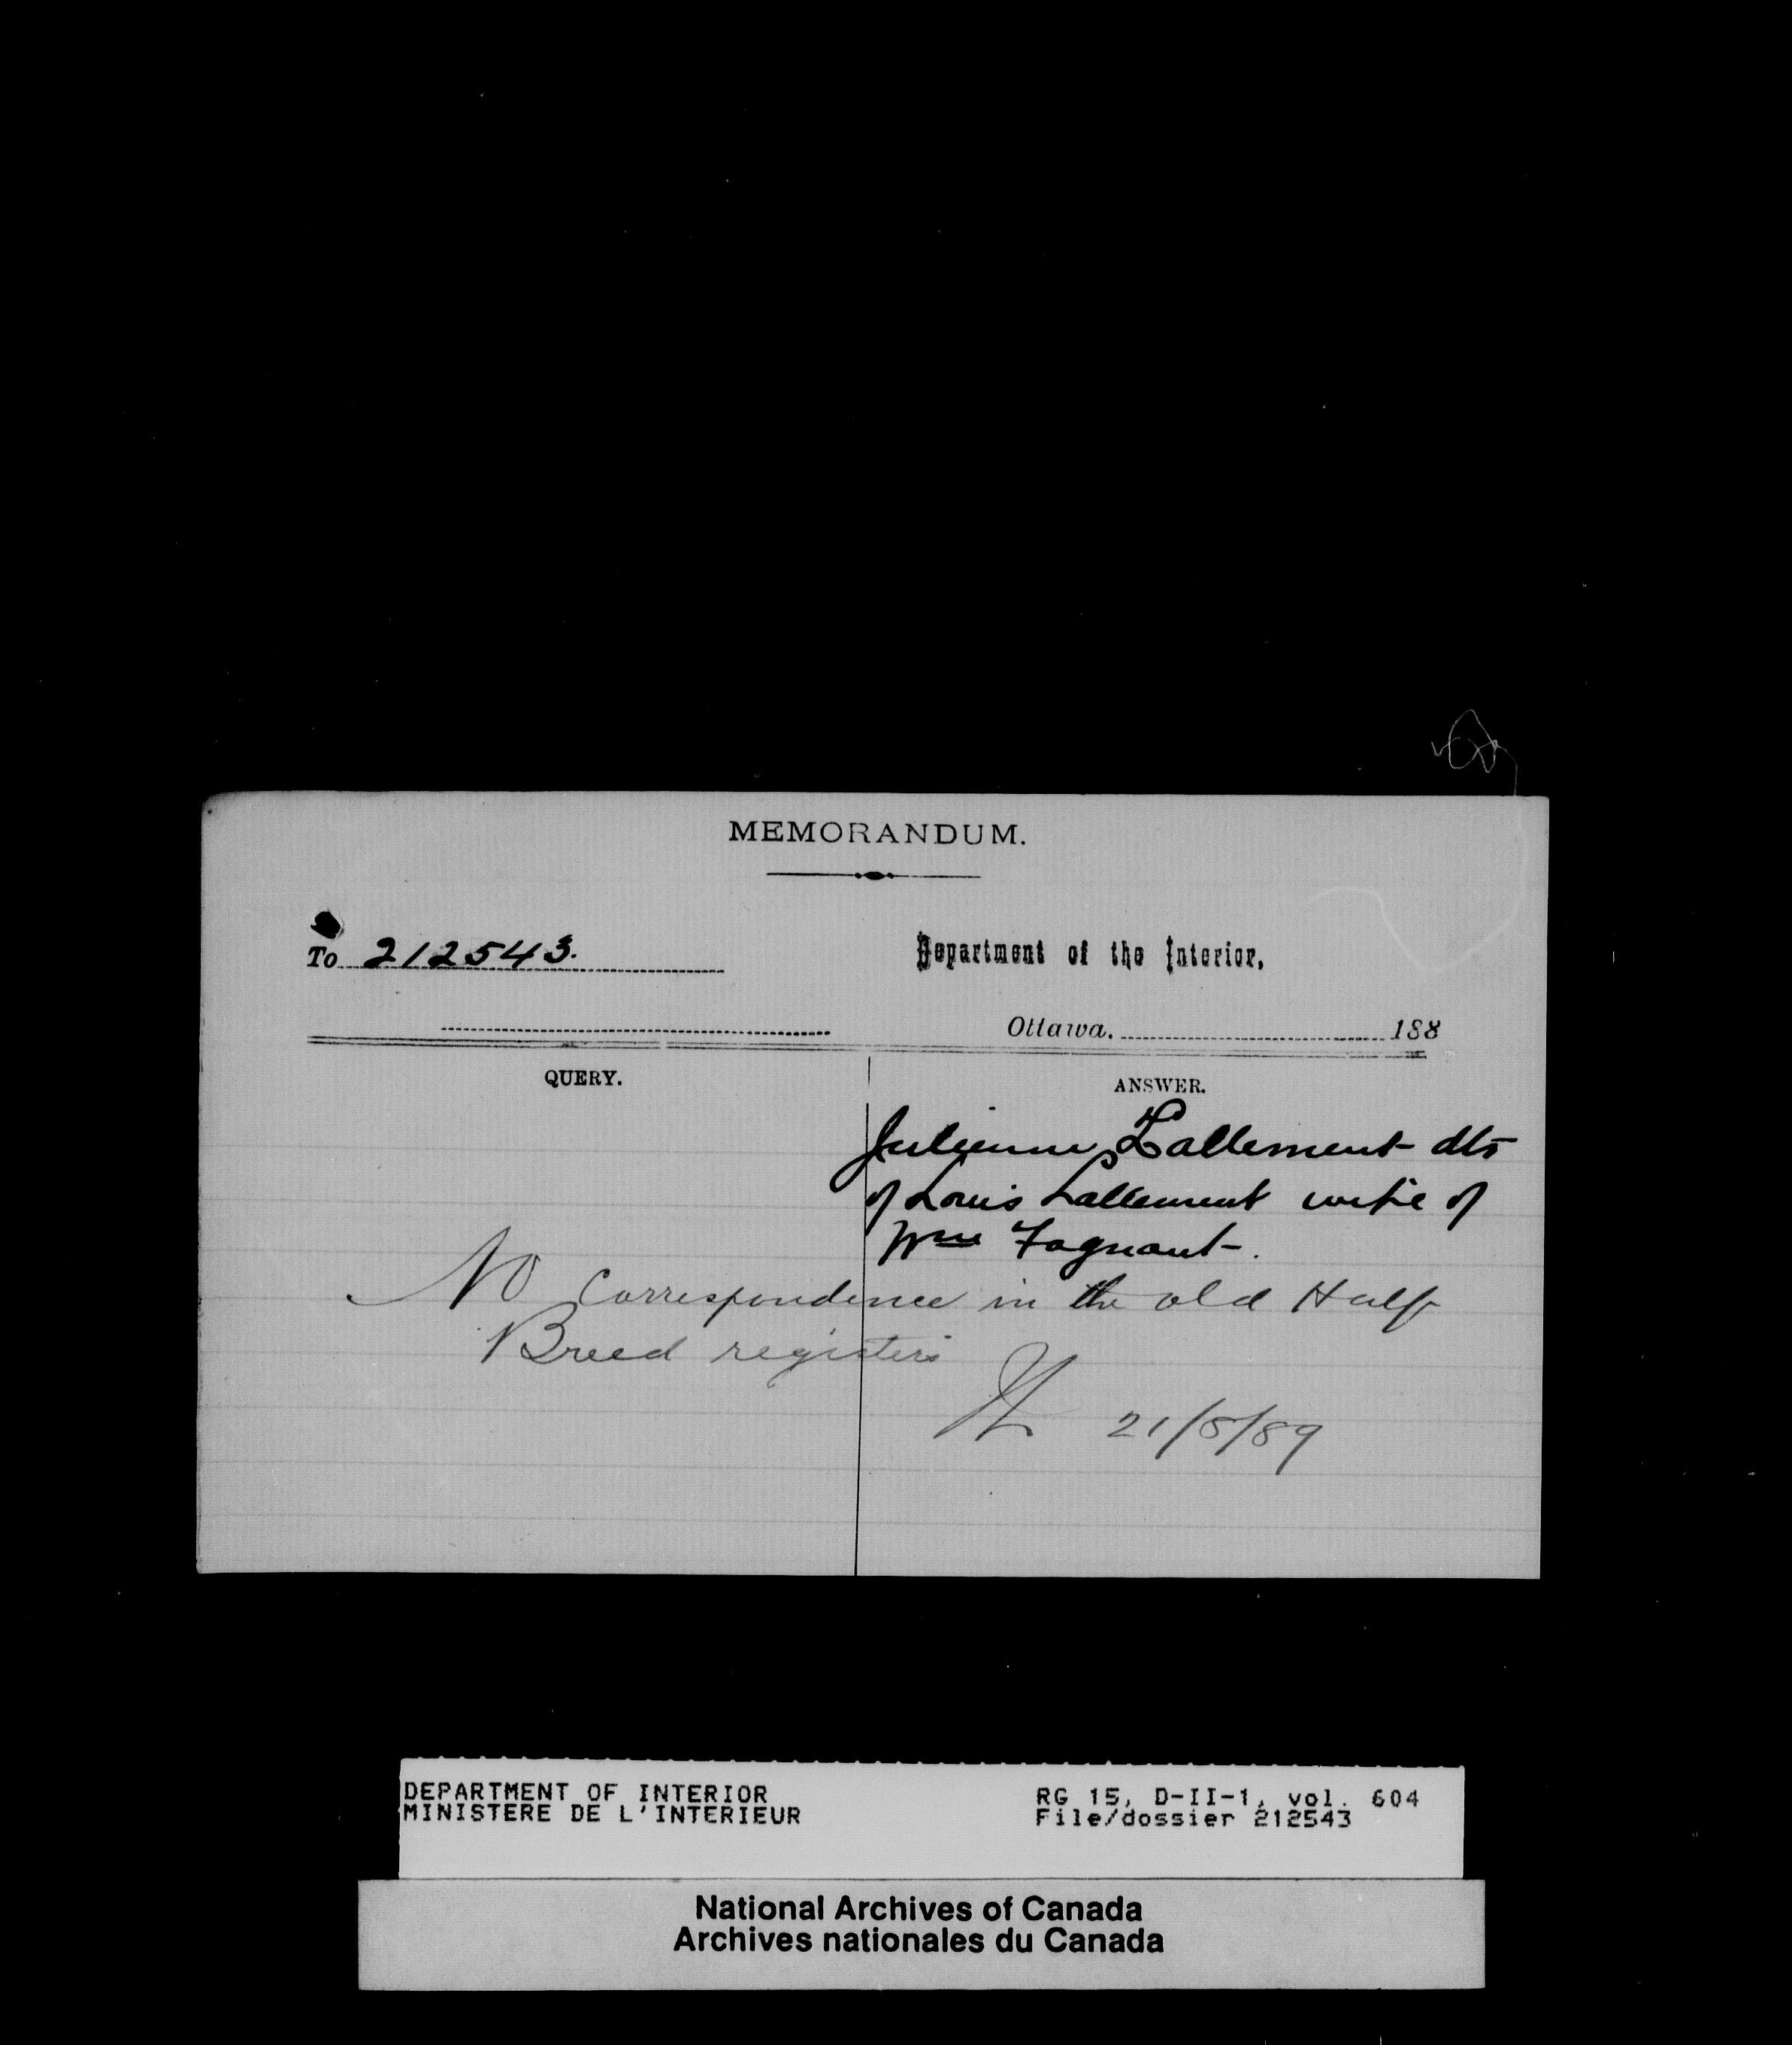 MEMORANDUM.
To 212543.
Department of the Interior,
Ottawa. 188
QUERY.
ANSWER.
Julienne Lallement dtr
of Louis Lallement wife of
Wm Fagnant.
No Correspondence in the old Half
Breed registers
21/8/89
DEPARTMENT OF INTERIOR
MINISTERE DE L'INTERIEUR
RG 15, D-II-1, vol. 604
File/dossier 212543
National Archives of Canada
Archives nationales du Canada